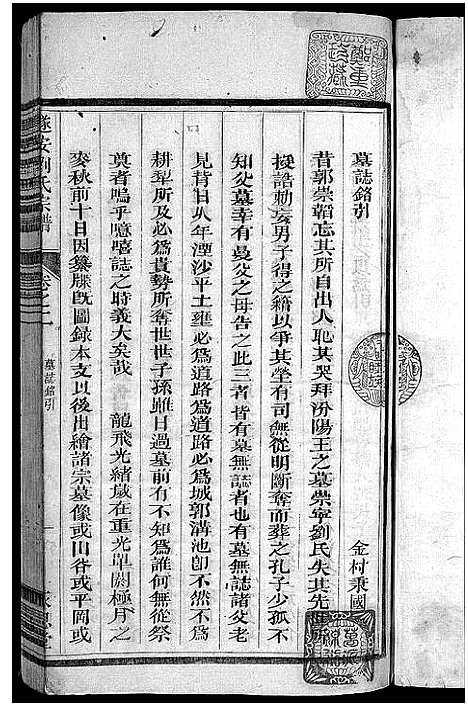 墓誌銘引
金村秉國
昔郭崇韜忘其所自出人恥其哭拜汾陽王之墓崇寧劉氏失其先世所
授誥勅妄男子得之藉以爭其塋有司無從明斷奪而葬之孔子少孤不
知父墓幸有曼父之母告之此三者皆有墓無誌者也有墓無誌諸父老
見背日久年湮沙平土壅必為道路為道路必為城郭溝池卽不然不為
耕犁所及必為貴勢所奪世世子孫雖日過墓前有不知為誰何無從祭
奠者嗚乎噫嘻誌之時義大矣哉 龍飛光緒歲在重光單閼極月之
麥秋前十日因纂牒旣圖錄本支以後出繪諸宗墓像或旧谷或平岡或
遂安劉氏宗譜
卷之一
墓誌銘引
鄭重珍藏